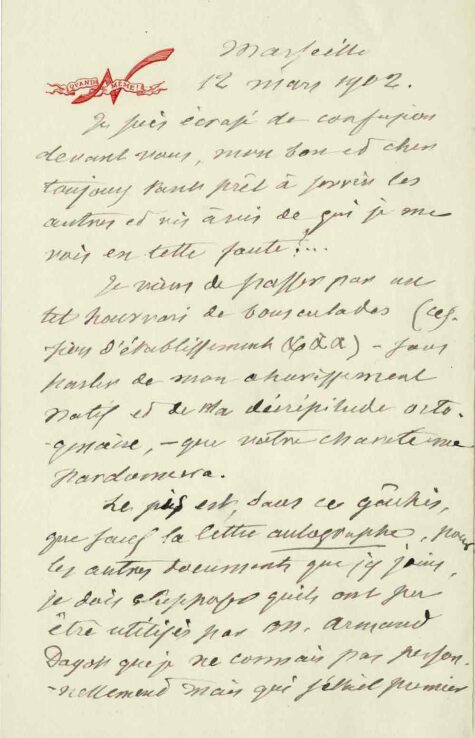 QUAND MÊME!
Marseille
12 mars 1902.
Je suis écrasé de confusion
devant vous, mon bon et cher
toujours tant prêt à servir les
autres et vis à vis de qui je me
vois en cette faute!...
Je viens de passer par un
tel hourvari de bousculades (ces-
sion d'établissement &a &a) – sans
parler de mon ahurissement
natif et de ma décrépitude octo-
-génaire, – que votre charité me
pardonnera.
Le pis est, dans ce gâchis,
que sauf la lettre autographe, pour
les autres documents que j'y joins,
je dois supposer qu'ils ont pu
être utilisés par M. Armand
Dayot que je ne connais pas person-
-nellement mais qui premier